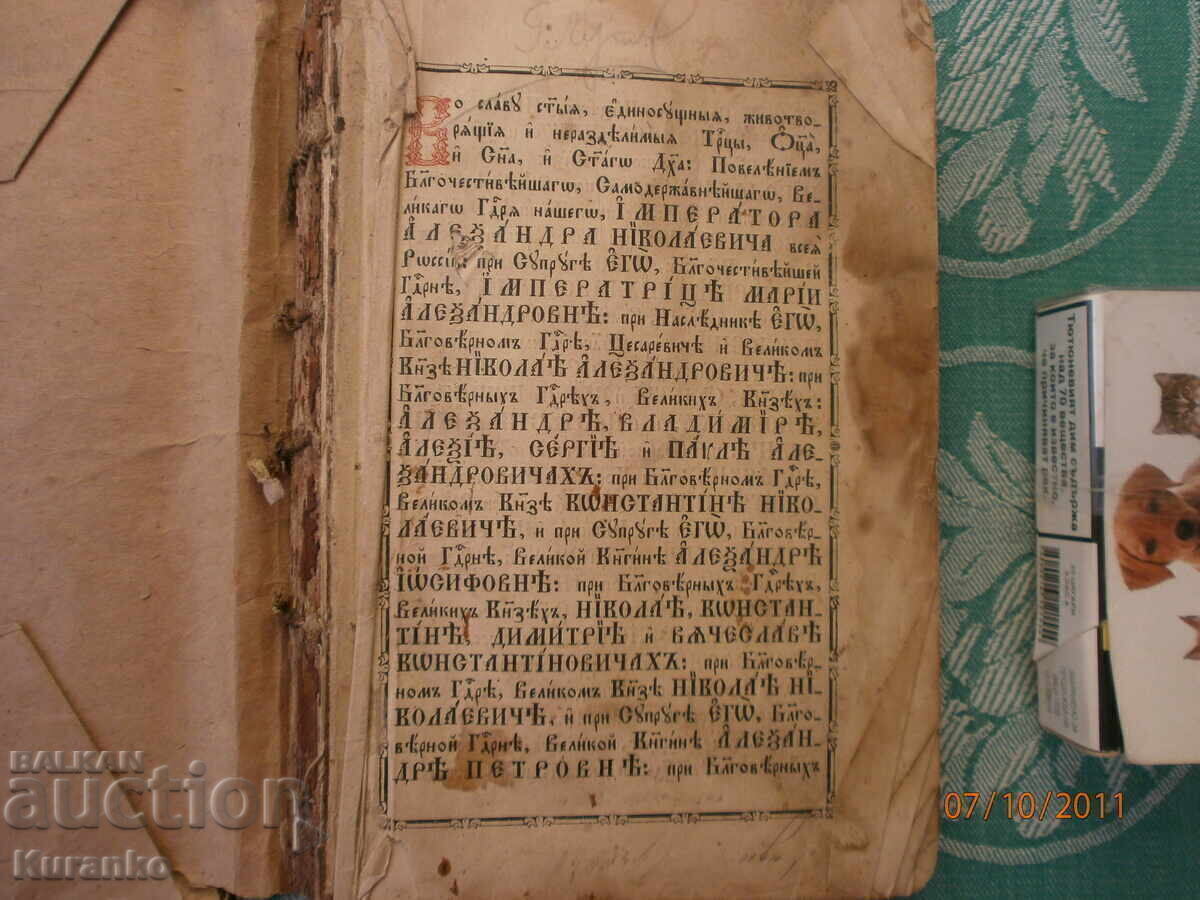 Во славу ст҃ыѧ, є҆диносꙋ́щныѧ, животво-
рѧ́щїѧ и҆ нераздѣли́мыѧ Трⷪ҇цы, Ѻ҆ц҃а̀,
и҆ Сн҃а, и҆ Ст҃а́гѡ Дх҃а: Повелѣ́нїемъ
Бл҃гочести́вѣйшагѡ, Самодержа́внѣйшагѡ, Ве-
ли́кагѡ Гдⷭ҇рѧ на́шегѡ, І҆МПЕРА́ТОРА
А҆ЛЕѮА́НДРА НЇКОЛА́ЕВИЧА всеѧ̀
Рѡссі́и: при Сꙋпрꙋ́гѣ Є҆гѡ̀, Бл҃гочести́вѣйшей
Гдⷭ҇рнѣ, І҆МПЕРАТРІ́ЦѢ МАРІ́И
А҆ЛЕѮА́НДРОВНѢ: при Наслѣ́дникѣ Є҆гѡ̀,
Бл҃говѣ́рномъ Гдⷭ҇рѣ, Цесаре́вичѣ и҆ Вели́комъ
Кн҃зѣ НЇКОЛА́Ѣ А҆ЛЕѮА́НДРОВИЧѢ: при
Бл҃говѣ́рныхъ Гдⷭ҇рѣхъ, Вели́кихъ Кн҃зѣхъ:
А҆ЛЕѮА́НДРѢ, ВЛАДИ́МЇРѢ,
А҆ЛЕѮІ́Ѣ, СЕ́РГЇѢ и҆ ПА́ѴЛѢ А҆ЛЕ-
ѮА́НДРОВИЧАХЪ: при Бл҃говѣ́рномъ Гдⷭ҇рѣ,
Вели́комъ Кн҃зѣ КѠНСТАНТІ́НѢ НЇКО-
ЛА́ЕВИЧѢ, и҆ при Сꙋпрꙋ́гѣ Є҆гѡ̀, Бл҃говѣ́р-
ной Гдⷭ҇рнѣ, Вели́кой Кн҃ги́нѣ А҆ЛЕѮА́НДРѢ
І҆Ѡ́СИФОВНѢ: при Бл҃говѣ́рныхъ Гдⷭ҇рѣхъ,
Вели́кихъ Кн҃зѣхъ, НЇКОЛА́Ѣ, КѠНСТАН-
ТІ́НѢ, ДИМИ́ТРЇѢ и҆ ВѦЧЕСЛА́ВѢ
КѠНСТАНТІ́НОВИЧАХЪ: при Бл҃говѣ́р-
номъ Гдⷭ҇рѣ, Вели́комъ Кн҃зѣ НЇКОЛА́Ѣ НЇ-
КОЛА́ЕВИЧѢ, и҆ при Сꙋпрꙋ́гѣ Є҆гѡ̀, Бл҃го-
вѣ́рной Гдⷭ҇рнѣ, Вели́кой Кн҃ги́нѣ А҆ЛЕѮА́Н-
ДРѢ ПЕТРО́ВНѢ: при Бл҃говѣ́рныхъ
Тютюневият дим съдържа
над 70 вещества,
за които е известно,
че причиняват рак.
BALKAN
auction
Kuranko
07/10/2011